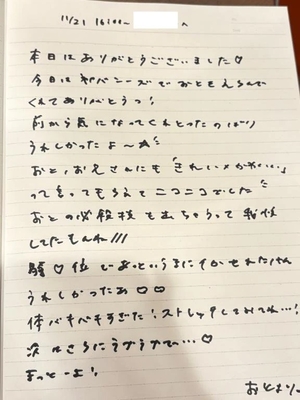 11/21 16:00~ へ
本日はありがとうございました♡
今日は で
くれてありがとうっ!
前から気になってくれとったのばり
うれしかったよ~
お兄さんにも「きれい」
って言ってもらえてニコニコでした
おとの必殺技も 我慢
してたもんね///
騎♡位であっというまにイかせれたけん
うれしかったぁ♡♡
体バキバキすぎた!ストレッチしておてね…!
次はさらにラブラブで…♡
まっとーよ!